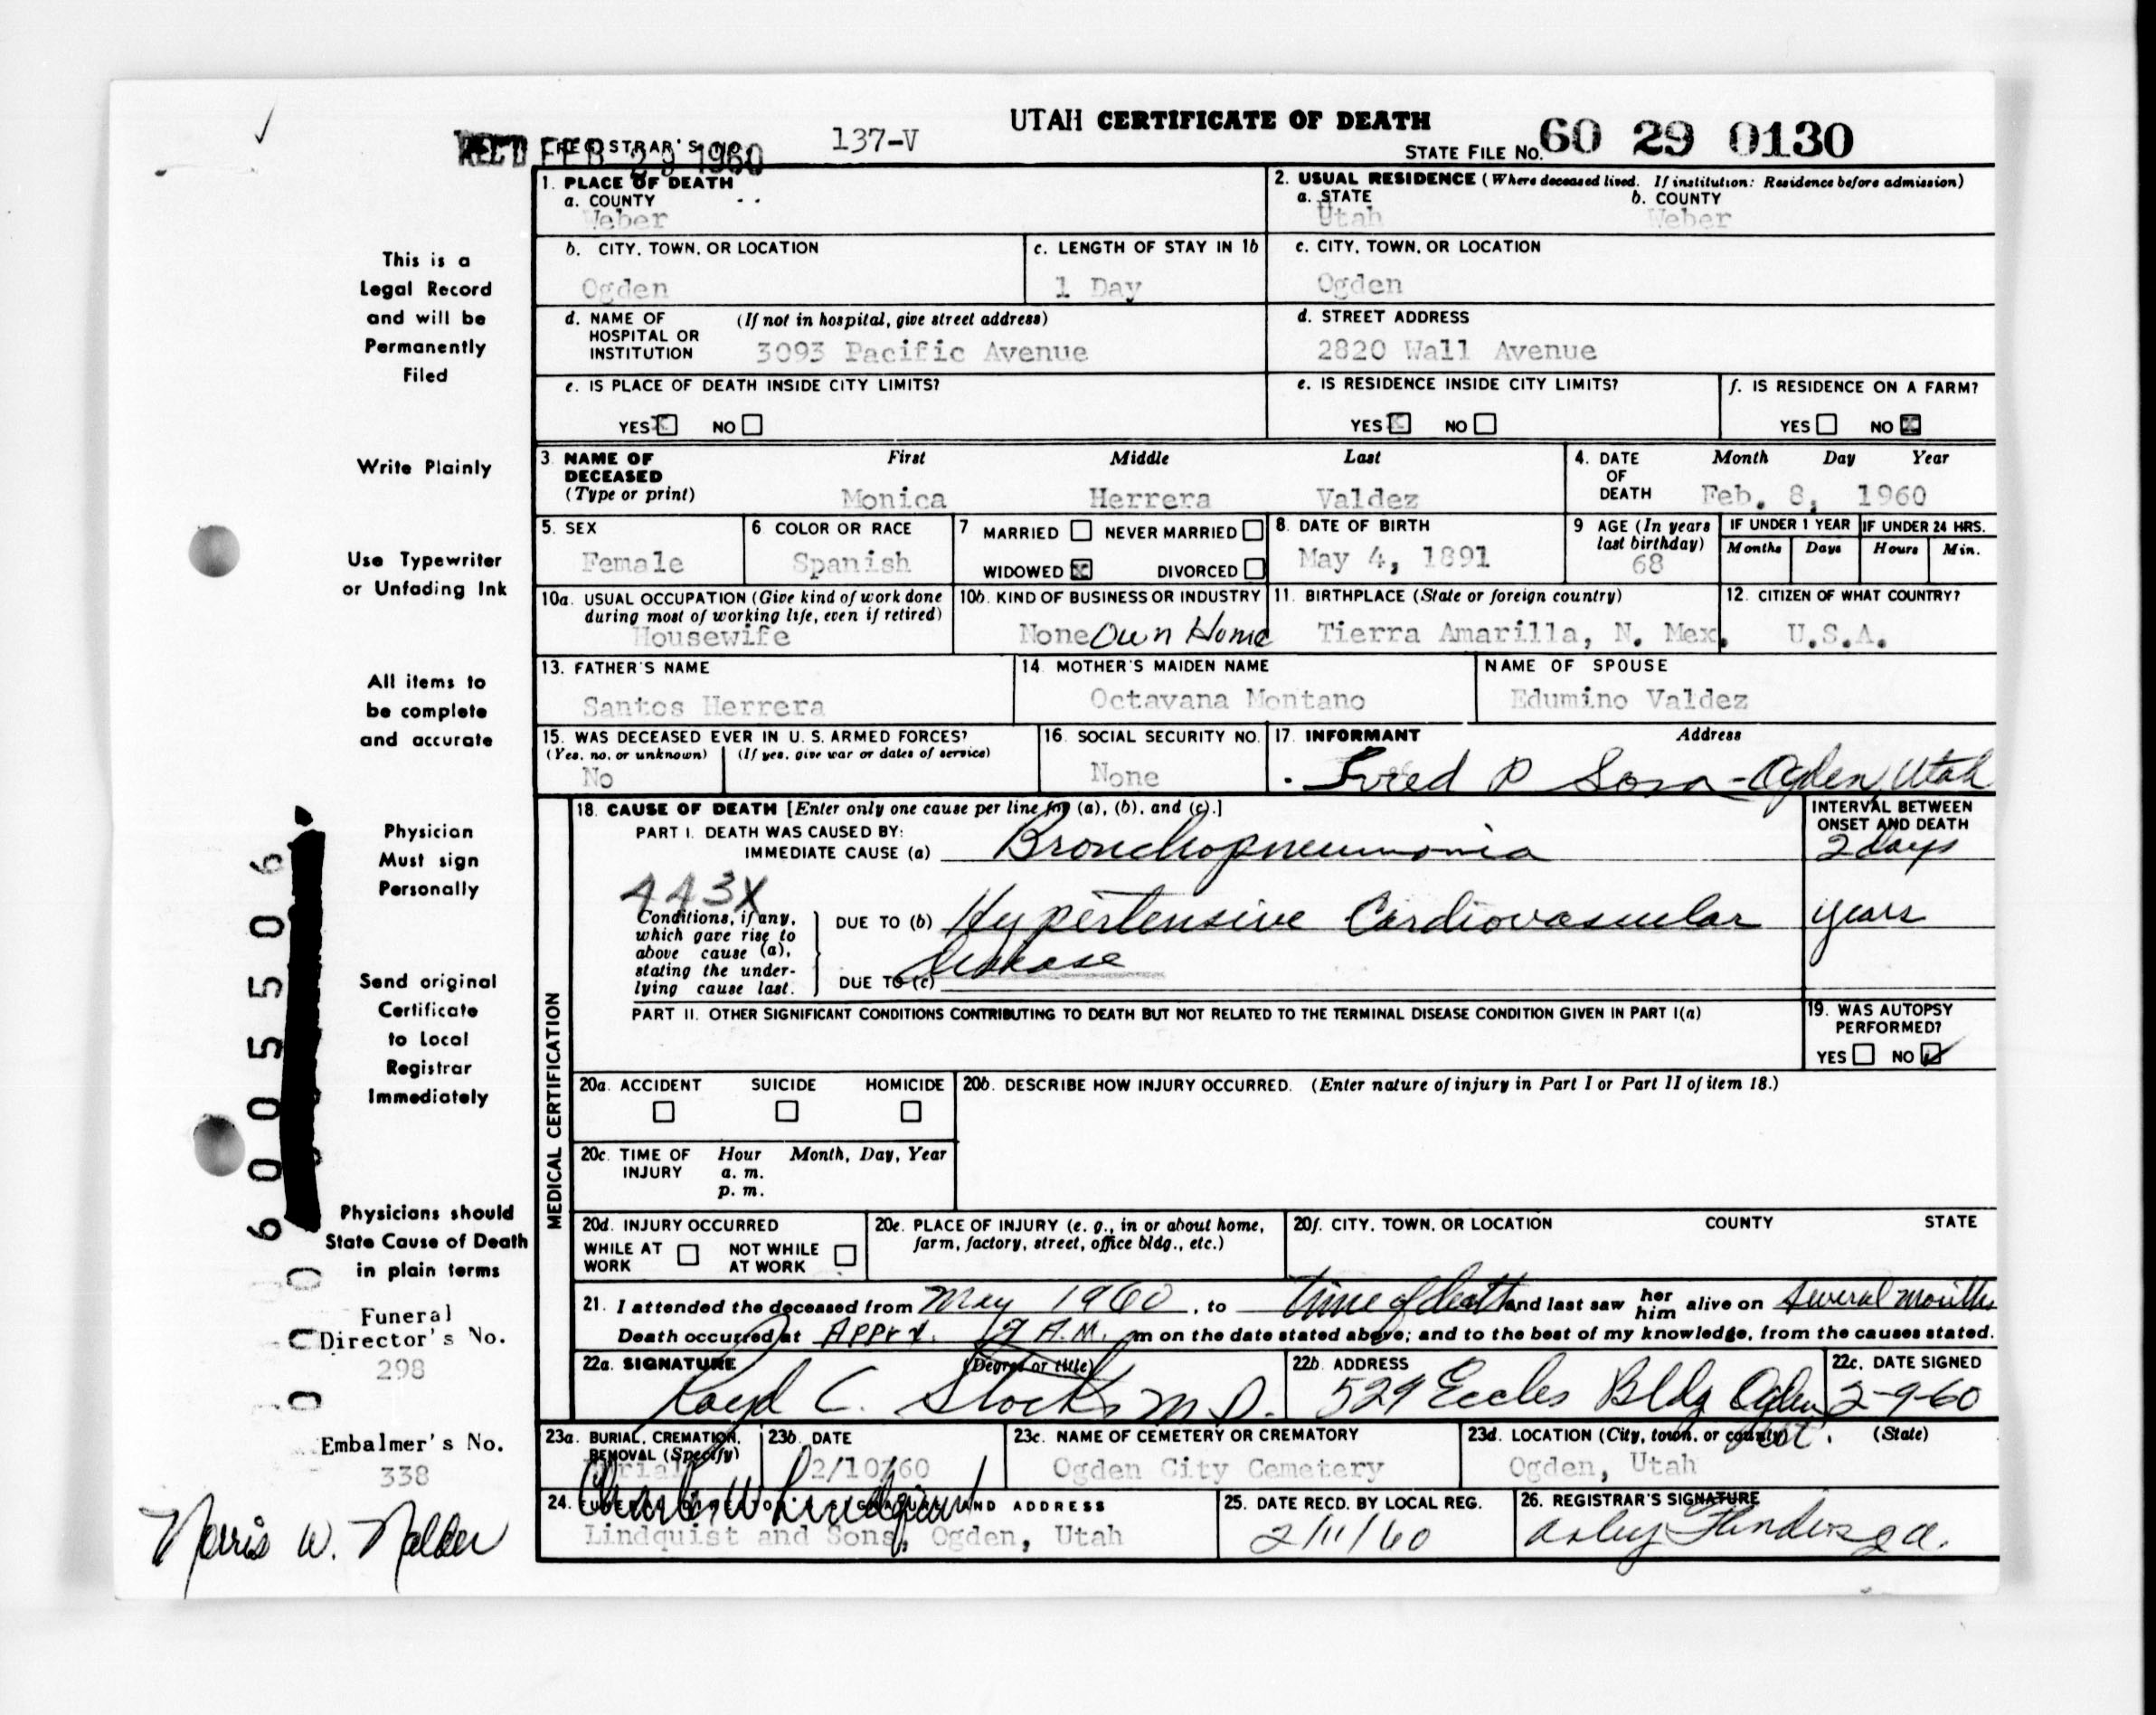 UTAH CERTIFICATE OF DEATH
REC'D FEB 29 1960
REGISTRAR'S 137-V
STATE FILE No. 60 29 0130
1. PLACE OF DEATH
a. COUNTY
Weber
2. USUAL RESIDENCE (Where deceased lived. If institution: Residence before admission)
a. STATE b. COUNTY
Utah Weber
b. CITY, TOWN, OR LOCATION
Ogden
c. LENGTH OF STAY IN 1b
1 Day
c. CITY, TOWN, OR LOCATION
Ogden
d. NAME OF HOSPITAL OR INSTITUTION (If not in hospital, give street address)
3093 Pacific Avenue
d. STREET ADDRESS
2820 Wall Avenue
e. IS PLACE OF DEATH INSIDE CITY LIMITS?
YES NO
e. IS RESIDENCE INSIDE CITY LIMITS?
YES NO
f. IS RESIDENCE ON A FARM?
YES NO
3. NAME OF DECEASED (Type or print)
First Middle Last
Monica Herrera Valdez
4. DATE OF DEATH
Month Day Year
Feb. 8, 1960
5. SEX
Female
6 COLOR OR RACE
Spanish
7 MARRIED NEVER MARRIED
WIDOWED DIVORCED
8. DATE OF BIRTH
May 4, 1891
9 AGE (In years last birthday)
68
IF UNDER 1 YEAR
Months Days
IF UNDER 24 HRS.
Hours Min.
10a. USUAL OCCUPATION (Give kind of work done during most of working life, even if retired)
Housewife
10b. KIND OF BUSINESS OR INDUSTRY
None Own Home
11. BIRTHPLACE (State or foreign country)
Tierra Amarilla, N. Mex.
12. CITIZEN OF WHAT COUNTRY?
U.S.A.
13. FATHER'S NAME
Santos Herrera
14. MOTHER'S MAIDEN NAME
Octavana Montano
NAME OF SPOUSE
Edumino Valdez
15. WAS DECEASED EVER IN U. S. ARMED FORCES?
(Yes, no, or unknown) (If yes, give war or dates of service)
No
16. SOCIAL SECURITY NO.
None
17. INFORMANT Address
Fred P Sosa - Ogden, Utah
MEDICAL CERTIFICATION
18. CAUSE OF DEATH [Enter only one cause per line for (a), (b), and (c).]
PART I. DEATH WAS CAUSED BY:
IMMEDIATE CAUSE (a) Bronchopneumonia
INTERVAL BETWEEN ONSET AND DEATH
2 days
443X
Conditions, if any, which gave rise to above cause (a), stating the underlying cause last.
DUE TO (b) Hypertensive Cardiovascular
years
Disease
DUE TO (c)
PART II. OTHER SIGNIFICANT CONDITIONS CONTRIBUTING TO DEATH BUT NOT RELATED TO THE TERMINAL DISEASE CONDITION GIVEN IN PART I(a)
19. WAS AUTOPSY PERFORMED?
YES NO
20a. ACCIDENT SUICIDE HOMICIDE
20b. DESCRIBE HOW INJURY OCCURRED. (Enter nature of injury in Part I or Part II of item 18.)
20c. TIME OF INJURY
Hour Month, Day, Year
a. m.
p. m.
20d. INJURY OCCURRED
WHILE AT WORK NOT WHILE AT WORK
20e. PLACE OF INJURY (e. g., in or about home, farm, factory, street, office bldg., etc.)
20f. CITY, TOWN, OR LOCATION COUNTY STATE
21. I attended the deceased from May 1960, to time of death and last saw her him alive on several months
Death occurred at Apprx. A.M. m on the date stated above; and to the best of my knowledge, from the causes stated.
22a. SIGNATURE (Degree or title)
C. Stocks M.D.
22b. ADDRESS
529 Eccles Bldg Ogden Ut.
22c. DATE SIGNED
2-9-60
23a. BURIAL, CREMATION, REMOVAL (Specify)
Burial
23b. DATE
2/10/60
23c. NAME OF CEMETERY OR CREMATORY
Ogden City Cemetery
23d. LOCATION (City, town, or county) (State)
Ogden, Utah
24. FUNERAL DIRECTOR'S SIGNATURE AND ADDRESS
Charles W Lindquist
Lindquist and Sons, Ogden, Utah
25. DATE RECD. BY LOCAL REG.
2/11/60
26. REGISTRAR'S SIGNATURE
This is a
Legal Record
and will be
Permanently
Filed
Write Plainly
Use Typewriter
or Unfading Ink
All items to
be complete
and accurate
Physician
Must sign
Personally
Send original
Certificate
to Local
Registrar
Immediately
Physicians should
State Cause of Death
in plain terms
Funeral
Director's No.
298
Embalmer's No.
338
Norris W. Nalder
6005506